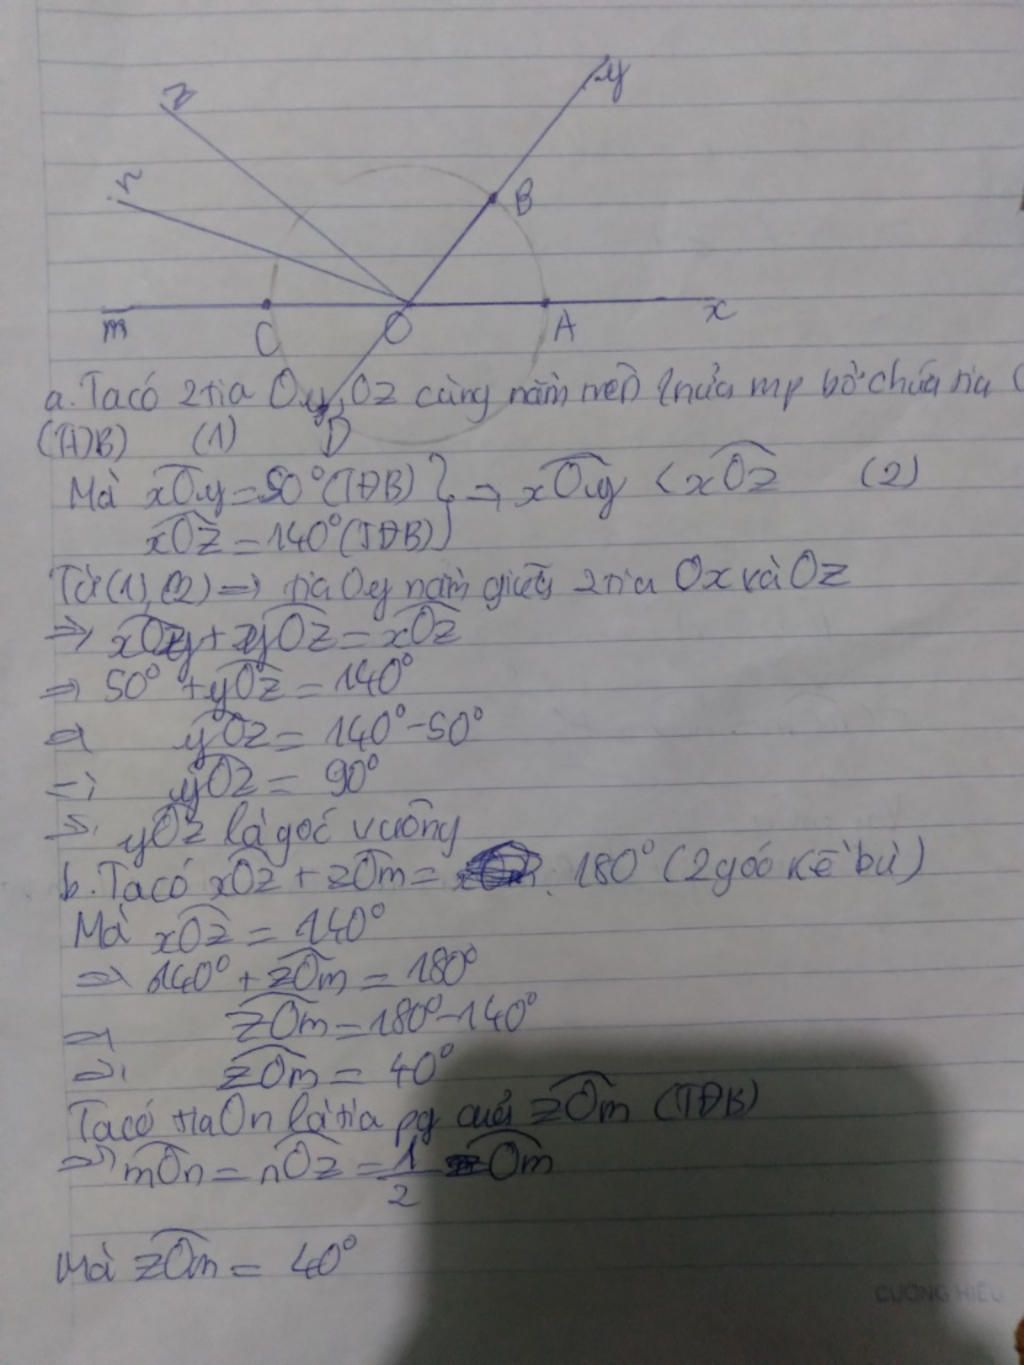 z
y
n
B
m
C
O
A
x
D
a. Ta có 2 tia Oy, Oz cùng nằm trên 1 nửa mp bờ chứa tia
(TĐB) (1)
Mà xOy = 50° (TĐB) } => xOy < xOz (2)
xOz = 140° (TĐB)
Từ (1), (2) => tia Oy nằm giữa 2 tia Ox và Oz
=> xOy + yOz = xOz
=> 50° + yOz = 140°
=> yOz = 140° - 50°
=> yOz = 90°
=> yOz là góc vuông
b. Ta có xOz + zOm = 180° (2 góc kề bù)
Mà xOz = 140°
=> 140° + zOm = 180°
=> zOm = 180° - 140°
=> zOm = 40°
Ta có tia On là tia pg của zOm (TĐB)
=> mOn = nOz = 1/2 zOm
Mà zOm = 40°
CUONG HIEU